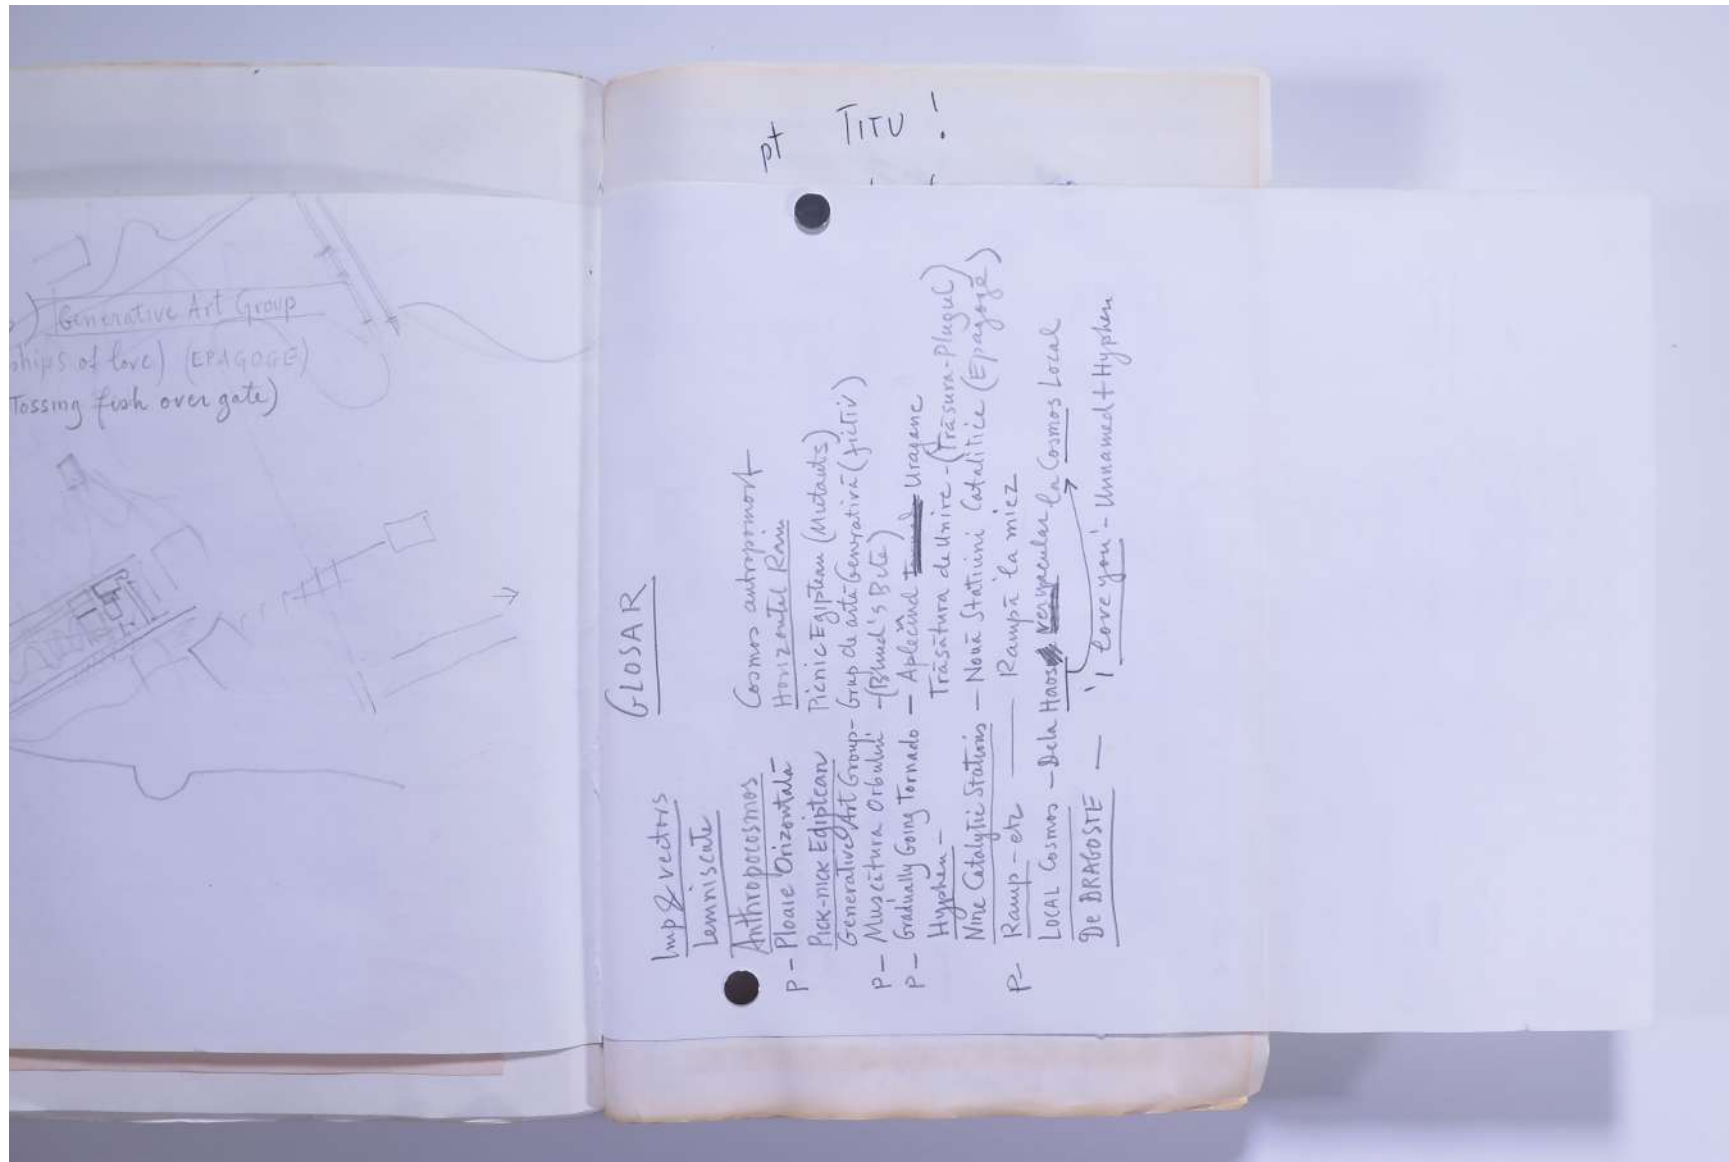 pt TITU !
Generative Art Group
ships of love) (EPAGOGE)
Tossing fish over gate)
GLOSAR
Imp & vectors
Lemniscate
Anthropocosmos Cosmos antropomorf
P - Ploaie Orizontală Horizontal Rain
Pick-nick Ediptean Picnic Egiptean (Mutants)
Generative Art Group - Grup de artă Generativă (fictiv)
P - Muscătura Orbului - (Blind's Bite)
P - Gradually Going Tornado - Aplecînd Uragane
Hyphen - Trăsătura de Unire - (Trăsura-Plugul)
Nine Catalytic Stations - Nouă Statiuni Catalitice (Epagogē)
P - Ramp - etz — Rampă la miez
LOCAL Cosmos - Dela Haos vernacular la Cosmos Local
De DRAGOSTE — 'I love you' - Unnamed + Hyphen